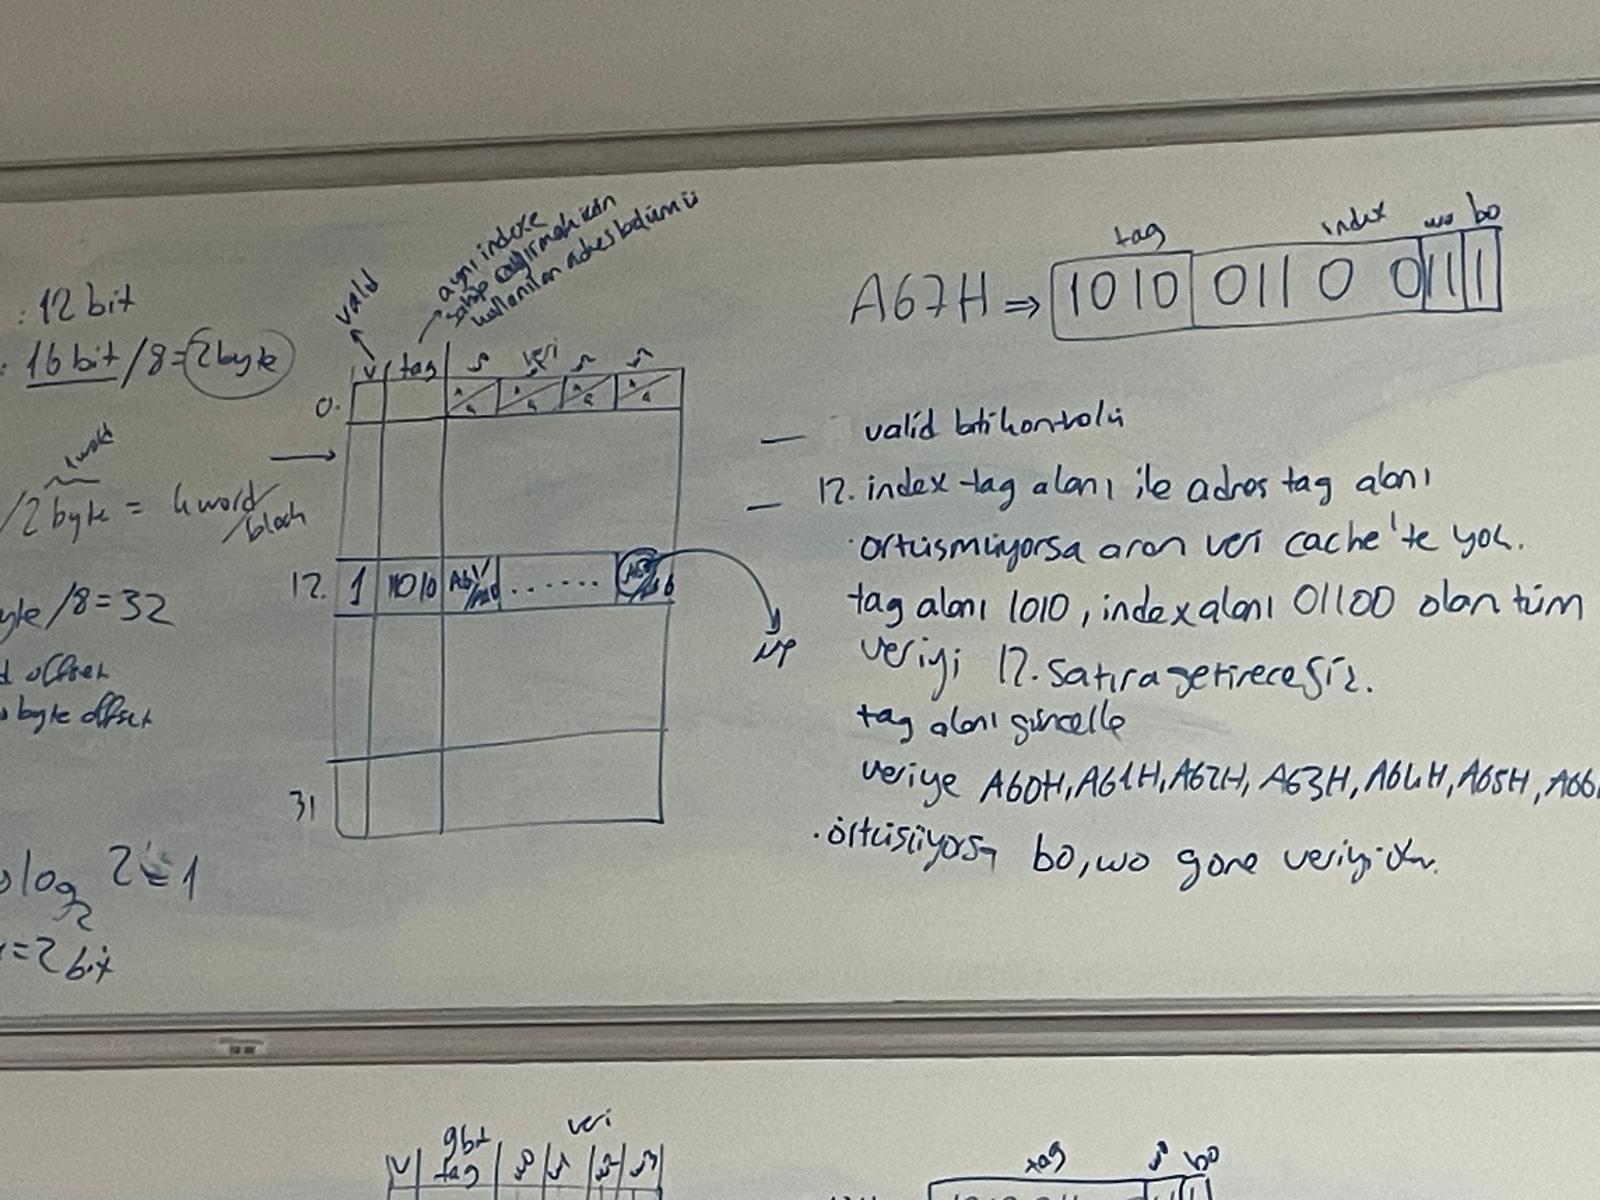 : 12 bit
: 16 bit/8=2byte
1 word
/2 byte = 4 word/block
yte /8=32
d offset
byte offset
log₂ 2=1
=2 bit
valid
aynı indexe
kullanılan adres bölümü
V tag veri
0.
12. 1 1010 A61/A60 ......
31
MP
tag index wo bo
A67H ⇒ 1010 0110 0 11 1
— valid biti kontrolü
— 12. index tag alanı ile adres tag alanı
örtüşmüyorsa aran veri cache'te yok.
tag alanı 1010, index alanı 01100 olan tüm
veriyi 12. satıra getireceğiz.
tag alanı güncelle
veriye A60H, A61H, A62H, A63H, A64H, A65H, A66
örtüşüyorsa bo, wo göre veriyi
9bit veri
V tag w0 w1 w2 w3
tag wo bo